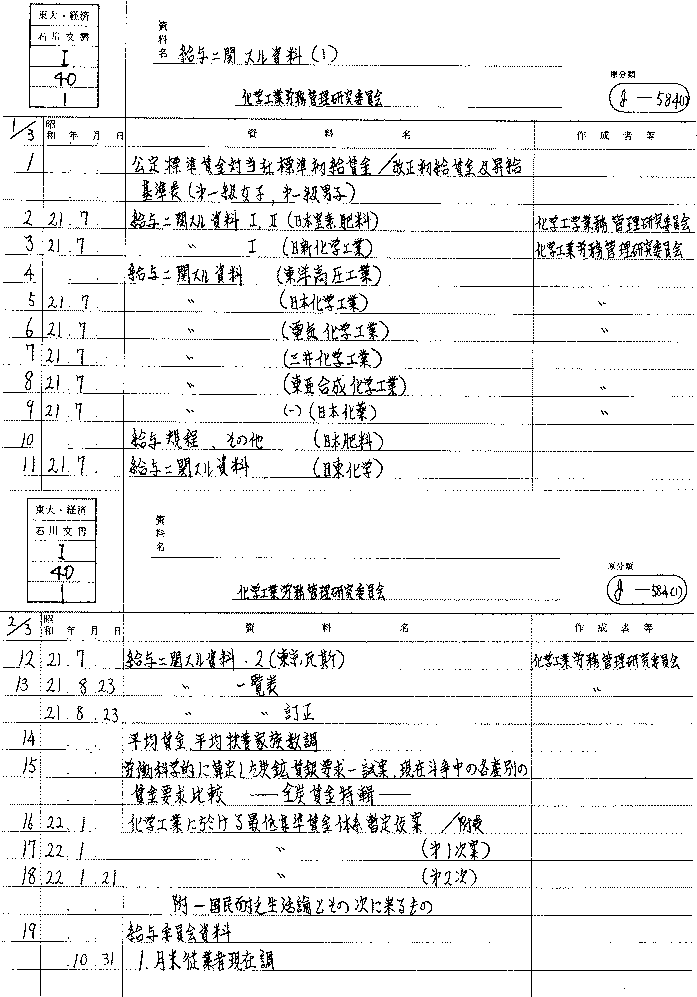 東大・経済
石川文書
I
40
1
資料名 給与ニ関スル資料(1)
化学工業労務管理研究委員会
原分類
J-584(1)
1/3 昭和 年 月 日 資料名 作成者等
1 公定標準賃金対当社標準初給賃金/改正初給賃金及昇給
基準表(第一級女子,第一級男子)
2 21.7 給与ニ関スル資料 I、II (日本窒素肥料) 化学工学業務管理研究委員会
3 21.7 〃 I (日新化学工業) 化学工業労務管理研究委員会
4 給与ニ関スル資料 (東洋高圧工業)
5 21.7 〃 (日本化学工業) 〃
6 21.7 〃 (電気化学工業) 〃
7 21.7 〃 (三井化学工業)
8 21.7 〃 (東亜合成化学工業) 〃
9 21.7 〃 (一) (日本化薬) 〃
10 給与規程、その他 (日本肥料)
11 21.7 給与ニ関スル資料 (日東化学)
東大・経済
石川文書
I
40
1
資料名
化学工業労務管理研究委員会
原分類
J-584(1)
2/3 昭和 年 月 日 資料名 作成者等
12 21.7 給与ニ関スル資料・2(東京瓦斯) 化学工業労務管理研究委員会
13 21.8.23 〃 一覧表 〃
21.8.23 〃 〃 訂正
14 平均賃金、平均扶養家族数調
15 労働科学的に算定した炭鉱賃銀要求一試案,現在斗争中の各産別の
賃金要求比較 ──全炭賃金特輯──
16 22.1 化学工業に於ける最低基準賃金体系暫定仮案 /附表
17 22.1 〃 (第1次案)
18 22.1.21 〃 (第2次)
附-国民耐乏生活論とその次に来るもの
19 給与委員会資料
10.31 1.月末従業者現在調